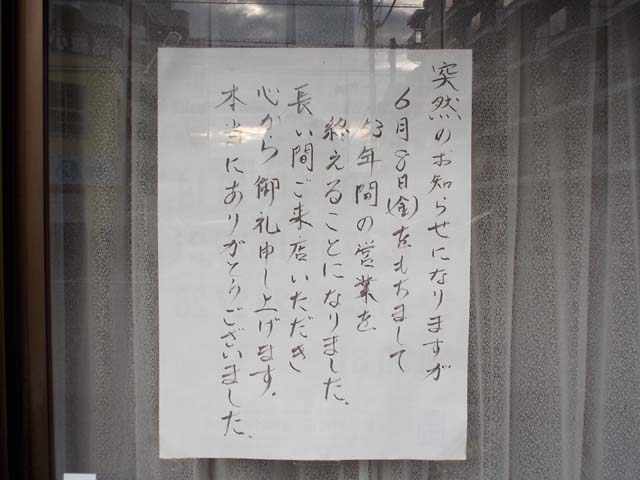 突然のお知らせになりますが
6月8日(金)をもちまして
53年間の営業を
終えることになりました。
長い間ご来店いただき
心から御礼申し上げます。
本当にありがとうございました。